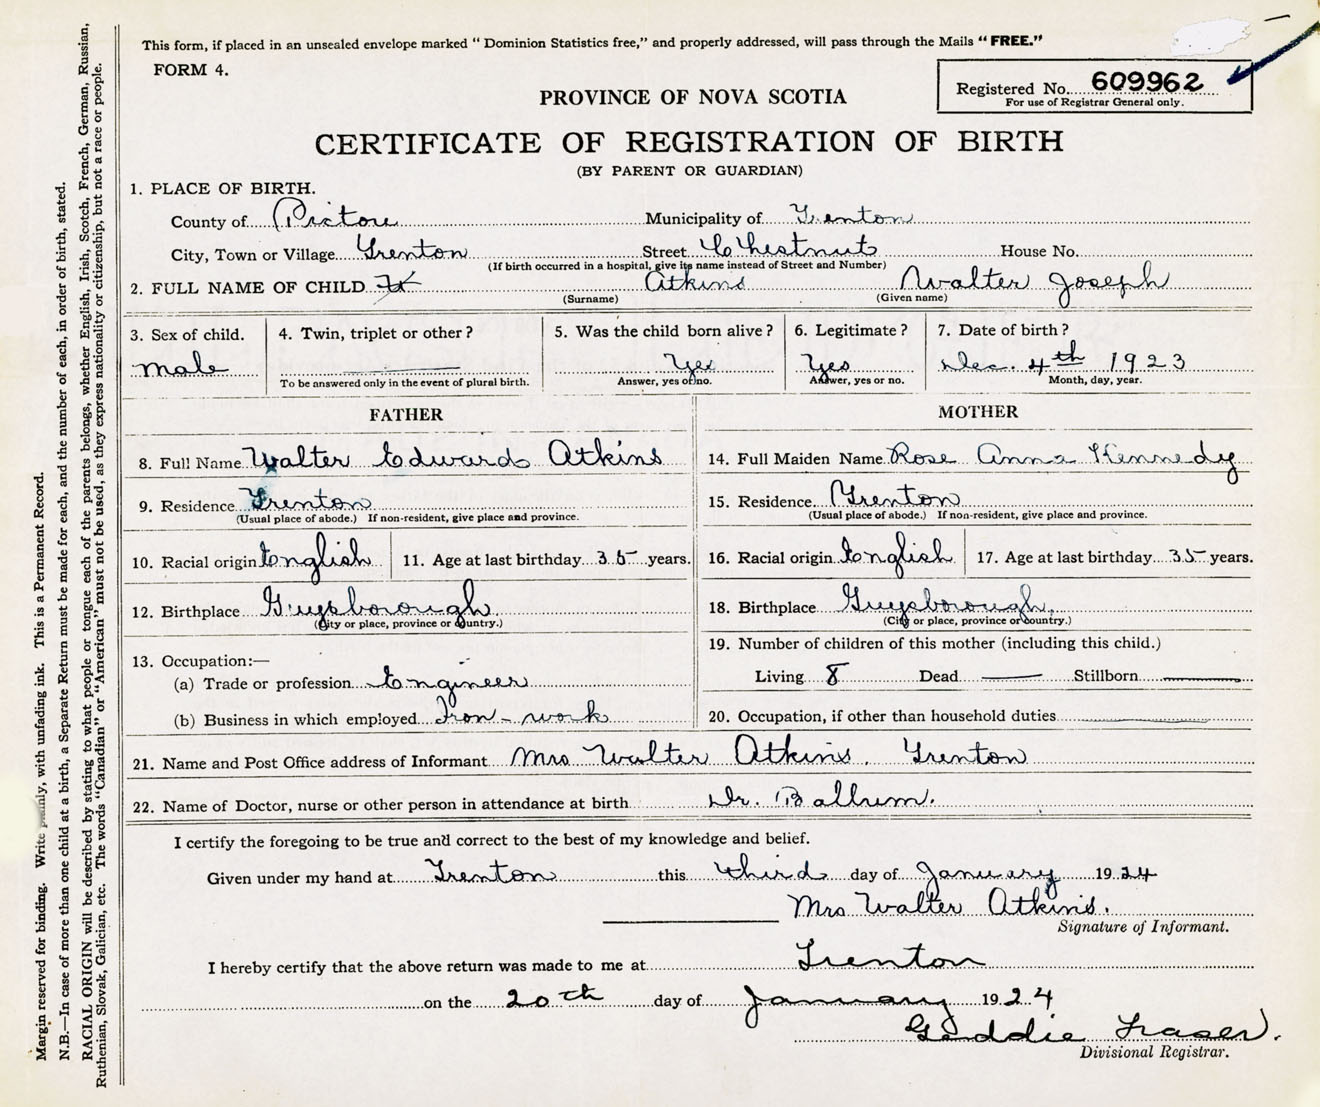 This form, if placed in an unsealed envelope marked "Dominion Statistics free," and properly addressed, will pass through the Mails "FREE."
FORM 4.
Registered No. 609962
For use of Registrar General only.
PROVINCE OF NOVA SCOTIA
CERTIFICATE OF REGISTRATION OF BIRTH
(BY PARENT OR GUARDIAN)
1. PLACE OF BIRTH.
County of Pictou Municipality of Trenton
City, Town or Village Trenton Street Chestnut House No.
(If birth occurred in a hospital, give its name instead of Street and Number)
2. FULL NAME OF CHILD Atkins Walter Joseph
(Surname) (Given name)
3. Sex of child. 4. Twin, triplet or other? 5. Was the child born alive? 6. Legitimate? 7. Date of birth?
male Yes Yes Dec. 4th 1923
To be answered only in the event of plural birth. Answer, yes or no. Answer, yes or no. Month, day, year.
FATHER MOTHER
8. Full Name Walter Edward Atkins 14. Full Maiden Name Rose Anna Kennedy
9. Residence Trenton 15. Residence Trenton
(Usual place of abode.) If non-resident, give place and province. (Usual place of abode.) If non-resident, give place and province.
10. Racial origin English 11. Age at last birthday 35 years. 16. Racial origin English 17. Age at last birthday 35 years.
12. Birthplace Guysborough 18. Birthplace Guysborough,
(City or place, province or country.) (City or place, province or country.)
13. Occupation:— 19. Number of children of this mother (including this child.)
(a) Trade or profession Engineer Living 8 Dead Stillborn
(b) Business in which employed Iron-work 20. Occupation, if other than household duties
21. Name and Post Office address of Informant Mrs Walter Atkins. Trenton
22. Name of Doctor, nurse or other person in attendance at birth Dr.
I certify the foregoing to be true and correct to the best of my knowledge and belief.
Given under my hand at Trenton this third day of January 1924
Mrs Walter Atkins.
Signature of Informant.
I hereby certify that the above return was made to me at Trenton
on the 20th day of January 1924
Geddie Fraser.
Divisional Registrar.
Margin reserved for binding. Write plainly, with unfading ink. This is a Permanent Record.
N.B.—In case of more than one child at a birth, a Separate Return must be made for each, and the number of each, in order of birth, stated.
RACIAL ORIGIN will be described by stating to what people or tongue each of the parents belongs, whether English, Irish, Scotch, French, German, Russian,
Ruthenian, Slovak, Galician, etc. The words "Canadian" or "American" must not be used, as they express nationality or citizenship, but not a race or people.